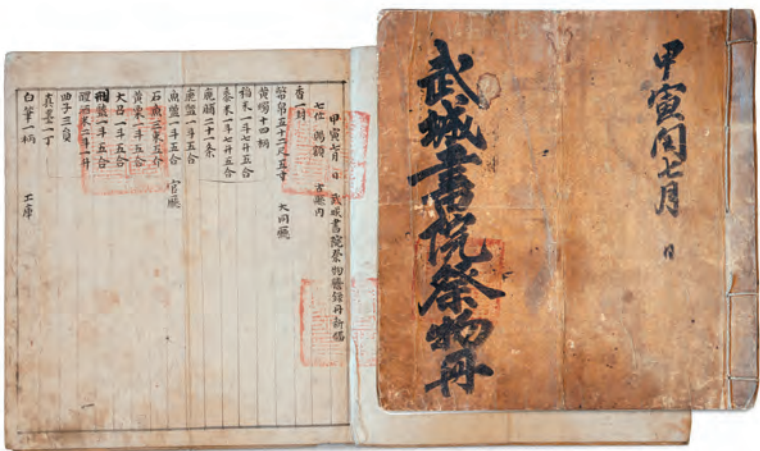 甲寅閏七月 日
武城書院祭物冊
甲寅七月 日 武城書院祭物謄錄冊新備
七位
香一封
幣帛五十二尺五寸 大同廳
黃燭十四柄
稻米一斗七升五合
黍米一斗七升五合
鹿脯二十一条
鹿醢一斗五合
魚醢一斗五合 官廳
石魚三束五介
黃栗一斗五合
大召一斗五合
一斗五合
醴酒米二斗一升
真墨一丁
白筆一柄 工庫